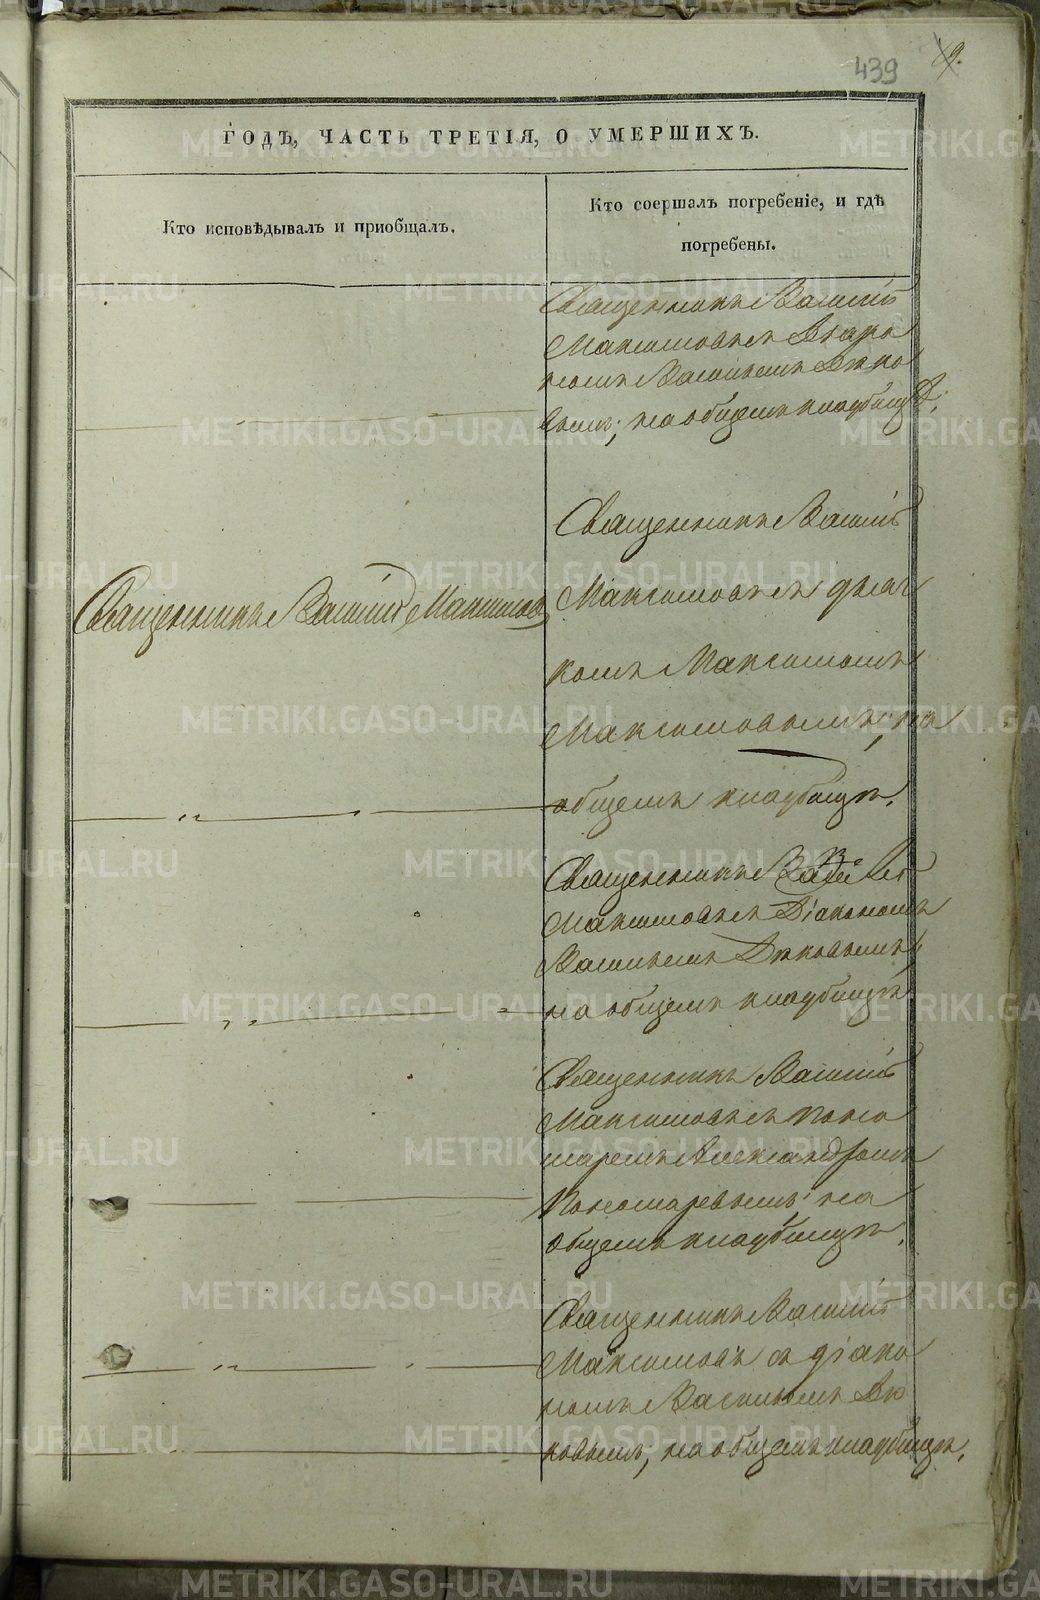 439
9.
ГОДЪ, ЧАСТЬ ТРЕТІЯ, О УМЕРШИХЪ.
Кто исповѣдывалъ и приобщалъ.
Кто соершалъ погребеніе, и гдѣ
погребены.
Священникъ Василій
Максимовъ съ Діако
номъ Васильемъ
вымъ, на общемъ кладбищѣ;
Священникъ Василій
Священникъ Василій Максимовъ
Максимовъ съ дьяч
комъ Максимомъ
Максимовымъ, на
общемъ кладбищѣ.
Священникъ Василій
Максимовъ съ Діакономъ
Васильемъ
на общемъ кладбищѣ
Священникъ Василій
Максимовъ съ поно
маремъ Александромъ
Пономаревымъ, на
общемъ кладбищѣ.
Священникъ Василій
Максимовъ съ діако
номъ Васильемъ
ковымъ, на общемъ кладбищѣ.
METRIKI.GASO-URAL.RU